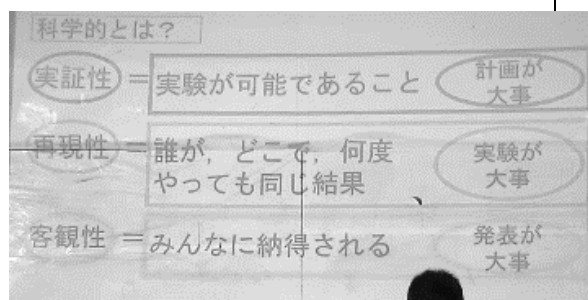 科学的とは？
実証性 = 実験が可能であること 計画が
大事
再現性 = 誰が，どこで，何度 実験が
やっても同じ結果 大事
客観性 = みんなに納得される 発表が
大事